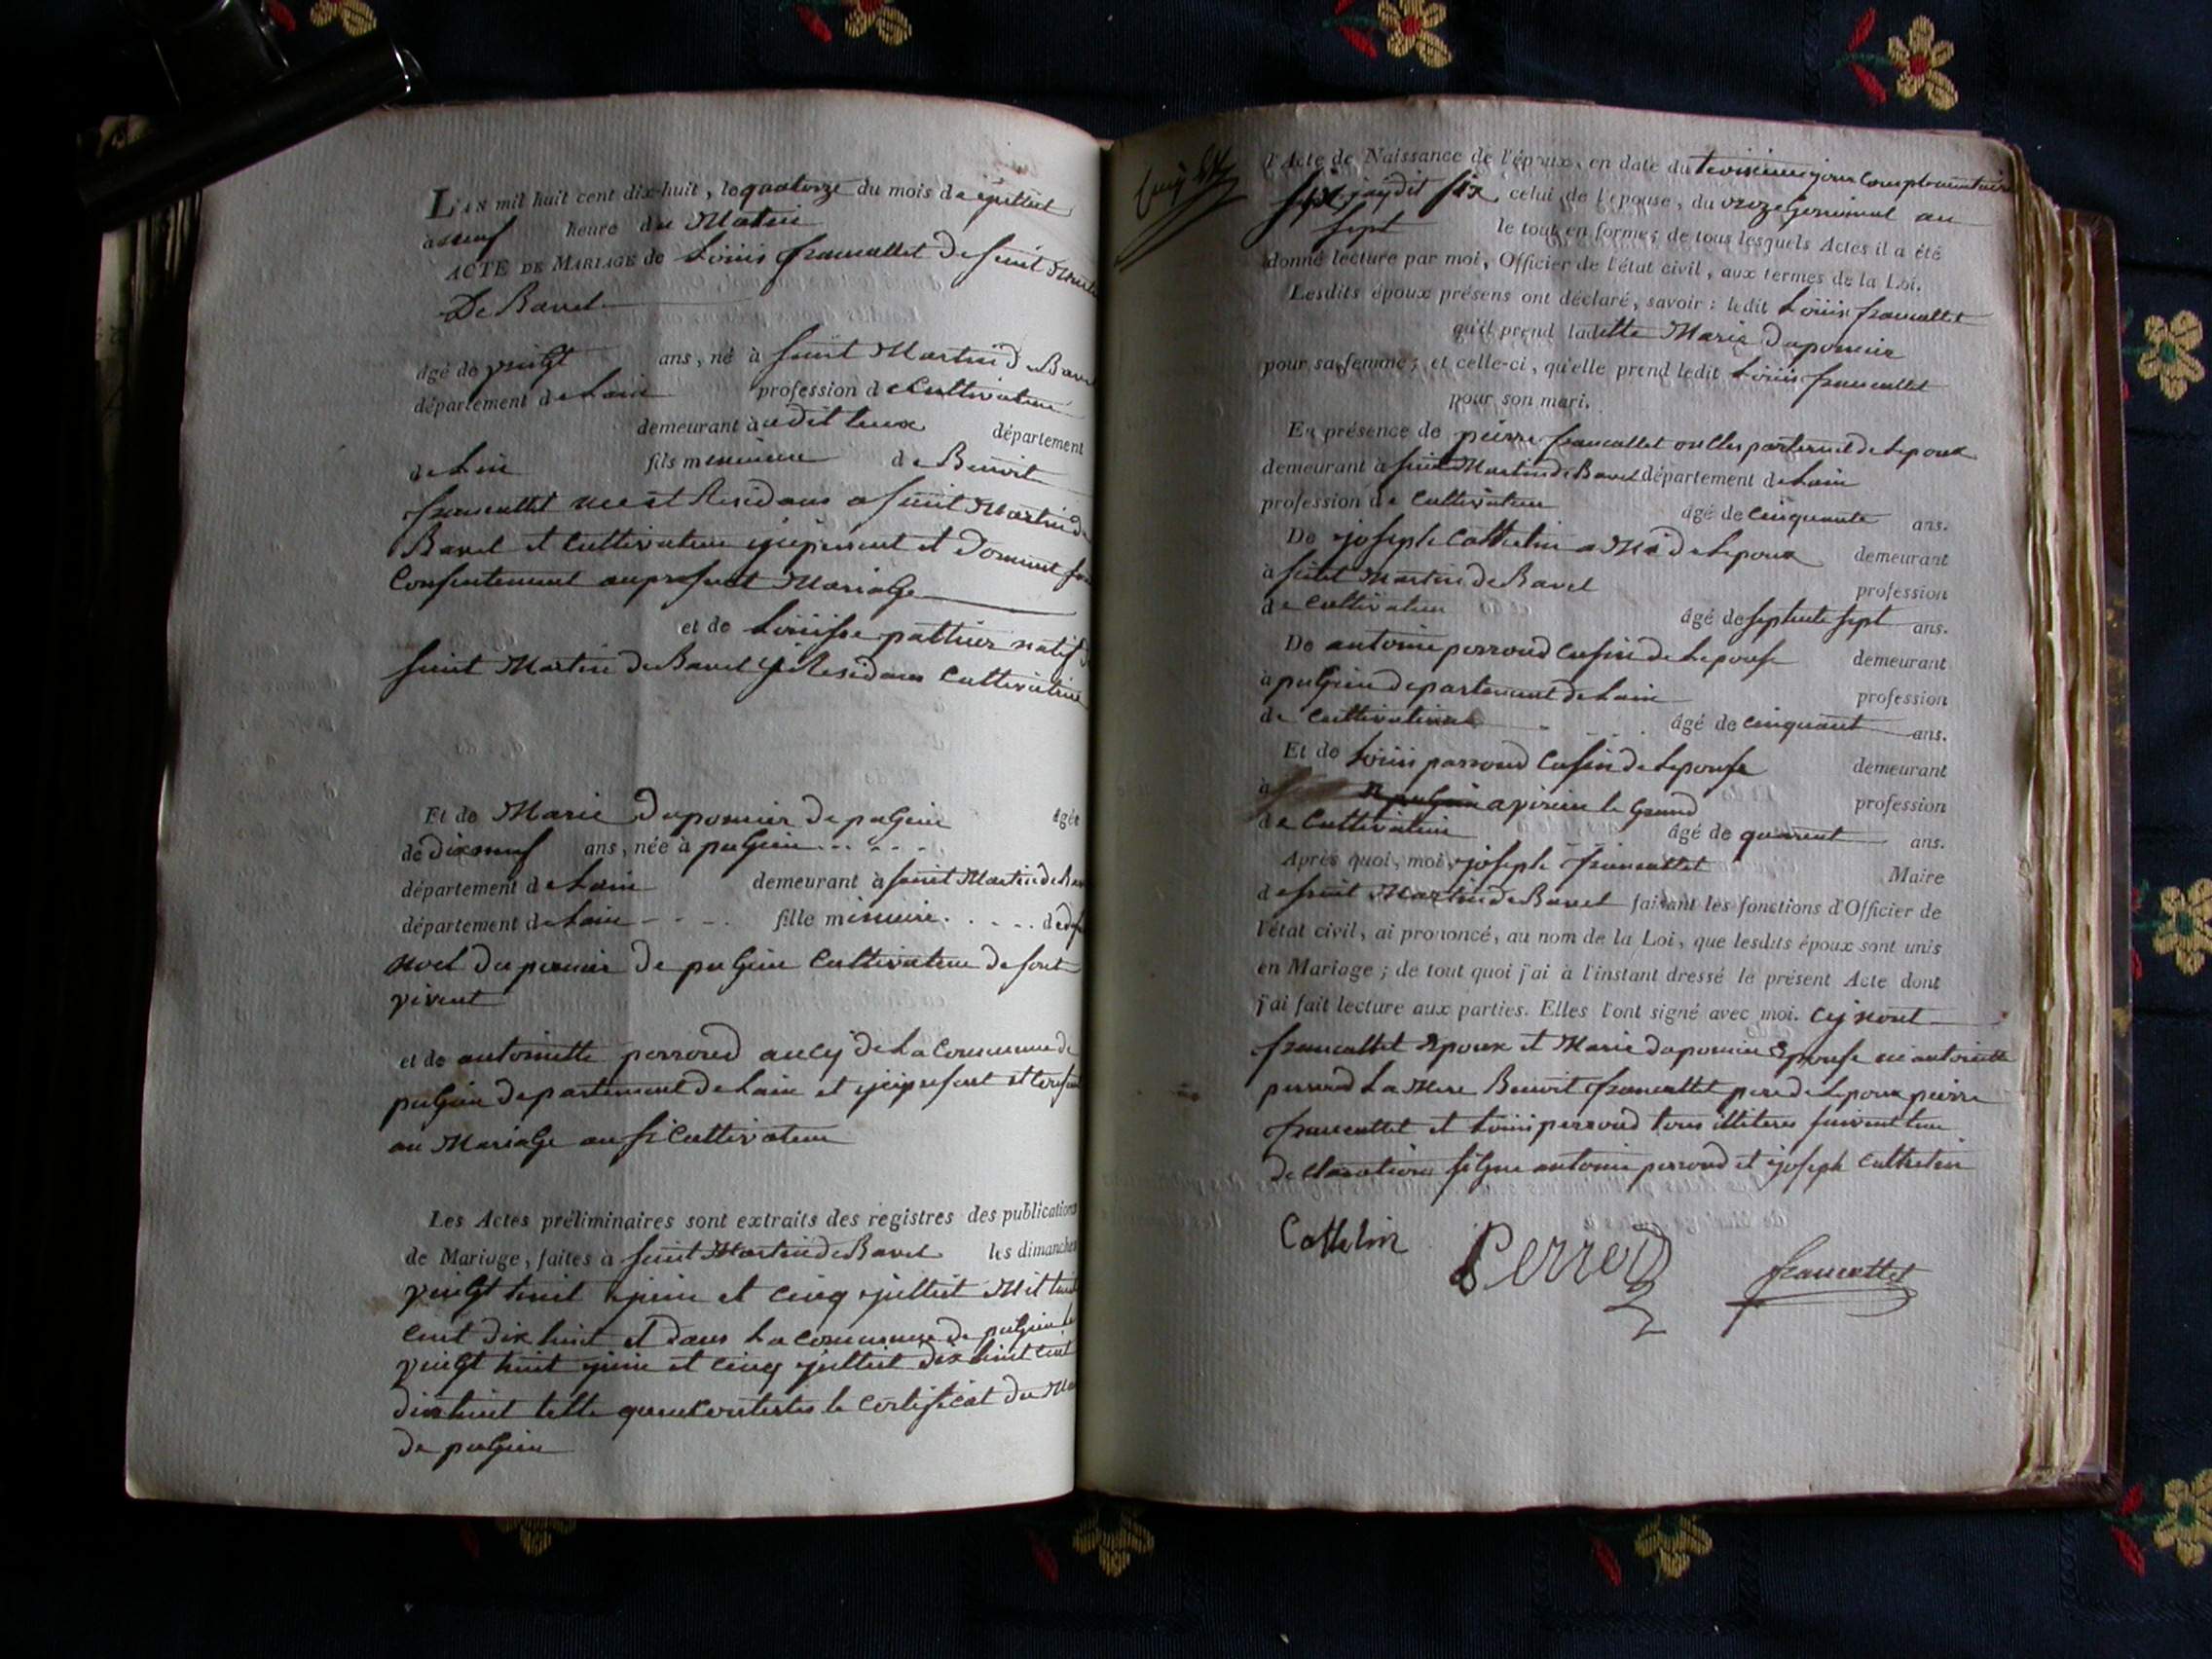 L'AN mil huit cent dix-huit, le quatorze du mois de juilliet
a neuf heure du Matin
ACTE DE MARIAGE de Loüis francallet De saint Martin
De Bavel
âgé de vingt ans, né à saint Martin de Bavel
département de Lain profession de Cultivateur
demeurant audit lieux département
de Lain fils mineure de Benoit
francallet Residans a saint Martin de
Bavel et Cultivateur present et Donnant son
Consentement au present Mariage
et de Loüisse pathier natif de
saint Martin de Bavel Residans Cultivatrice
Et de Marie Duponier de pulgieu âgée
de dix neuf ans, née à pulgieu
département de Lain demeurant à saint Martin de Bavel
département de Lain fille mineure de
noel duponier De pulgieu Cultivateur
vivent
et de antoinette perroud de La Commune de
pulgieu Departement de Lain et present et
au Mariage Cultivateur
Les Actes préliminaires sont extraits des registres des publications
de Mariage, faites à saint Martin de Bavel les dimanches
vingt huit juin et cinq juilliet Mil huit
cent dix huit et Dans La Commune de pulgieu le
vingt huit juin et cinq juilliet dix huit cent
dix huit le Certificat du
de pulgieu
l'Acte de Naissance de l'époux, en date du troisieme jour Complementaire
six, celui de l'épouse, du onze Germinal an
sept le tout en forme; de tous lesquels Actes il a été
donné lecture par moi, Officier de l'état civil, aux termes de la Loi.
Lesdits époux présens ont déclaré, savoir: ledit Loüis francallet
qu'il prend ladette Marie Duponier
pour sa femme; et celle-ci, qu'elle prend ledit Loüis francallet
pour son mari.
En présence de pierre francallet oncles paternel de Lepoux
demeurant à saint Martin de Bavel département de Lain
profession de Cultivateur âgé de cinquante ans.
De joseph Cathelin a Mi de Lepoux demeurant
à saint Martin de Bavel profession
de Cultivateur âgé de septente sept ans.
De antoine perroud Cusin de Lepouse demeurant
à pulgieu departement de Lain profession
de Cultivateur âgé de cinquant ans.
Et de Loüis perroud Cusin de Lepouse demeurant
à a virieu le Grand profession
de Cultivateur âgé de quarent ans.
Après quoi, moi, joseph francallet Maire
de saint Martin de Bavel faisant les fonctions d'Officier de
l'état civil, ai prononcé, au nom de la Loi, que lesdits époux sont unis
en Mariage; de tout quoi j'ai à l'instant dressé le présent Acte dont
j'ai fait lecture aux parties. Elles l'ont signé avec moi.
francallet Epoux et Marie duponier Epouse ni antoinette
perroud La Mere Benoit francallet pere de Lepoux pierre
francallet et Loüis perroud tous illiteres suivent leur
declaration signe antoine perroud et joseph Cathelin
Cathelin Perroud francallet